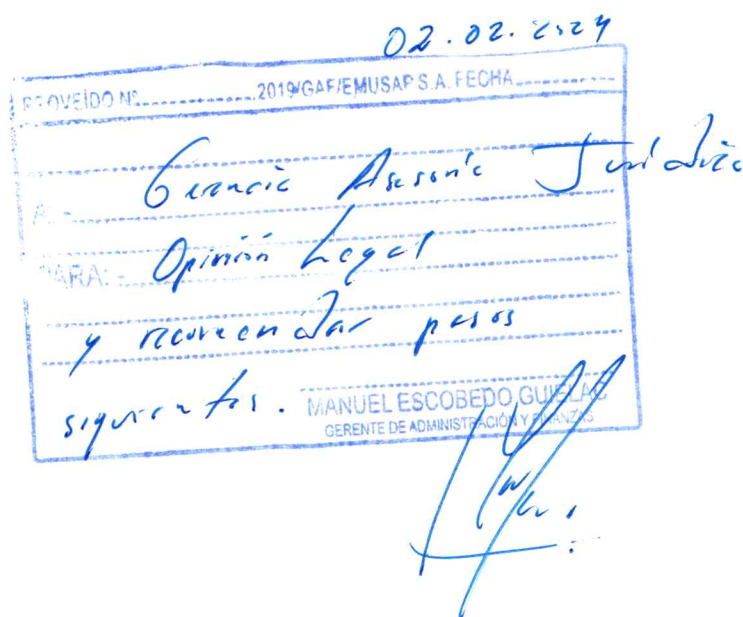 02.02.2024
PROVEÍDO Nº 2019/GAF/EMUSAP S.A. FECHA
A: - Gerencia Asesoría Jurídica
PARA: - Opinión Legal
y recomendar pasos
siguientes.
MANUEL ESCOBEDO GUIELAC
GERENTE DE ADMINISTRACIÓN Y FINANZAS